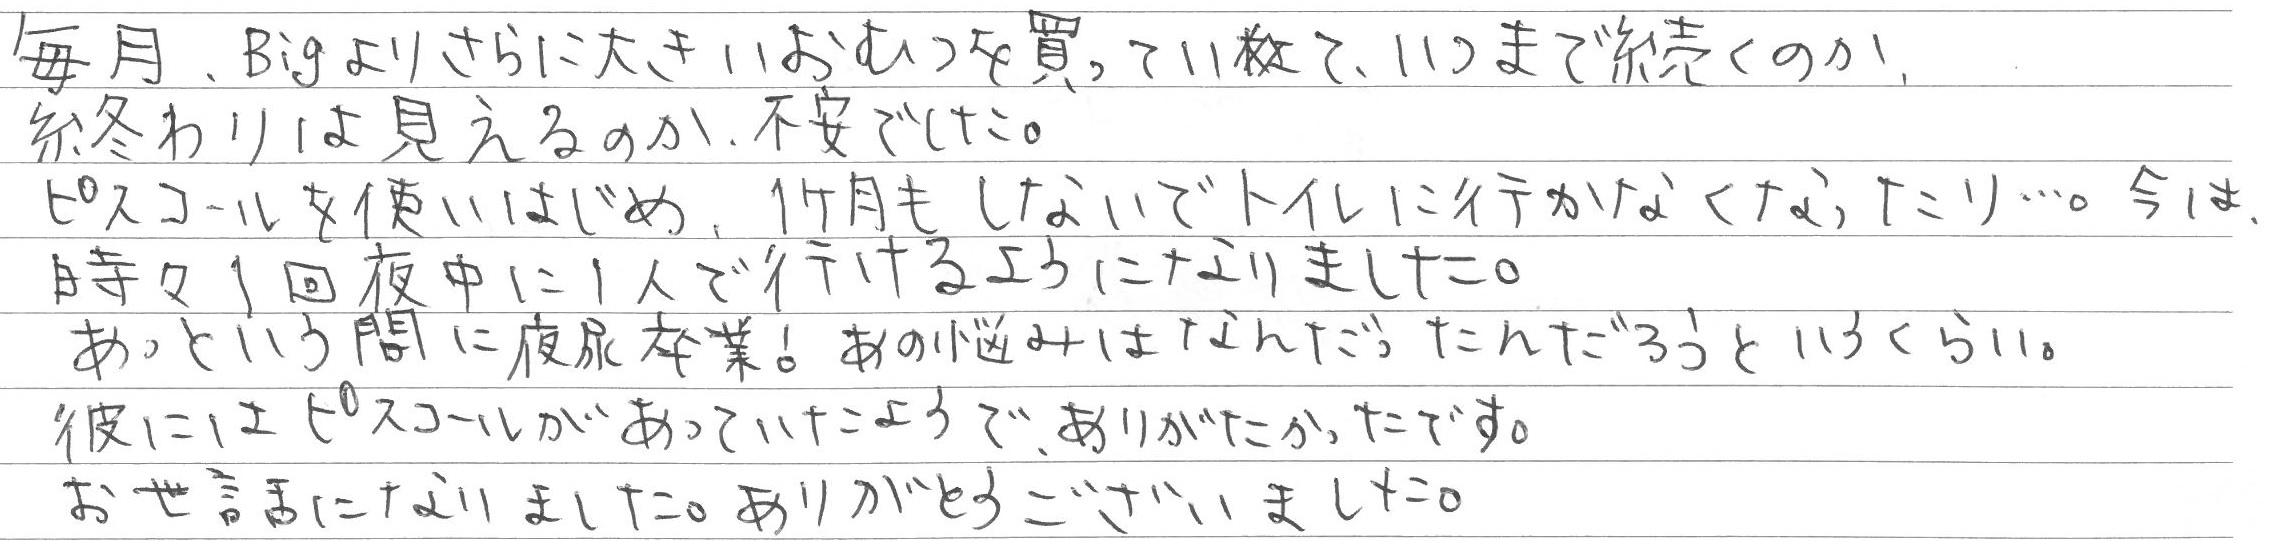 毎月、Bigよりさらに大きいおむつを買ってい枚て、いつまで続くのか、
終わりは見えるのか、不安でした。
ピスコールを使いはじめ、1ケ月もしないでトイレに行かなくなったり…。今は、
時々1回夜中に1人で行けるようになりました。
あっという間に夜尿卒業!あの悩みはなんだったんだろうというくらい。
彼にはピスコールがあっていたようで、ありがたかったです。
お世話になりました。ありがとうございました。